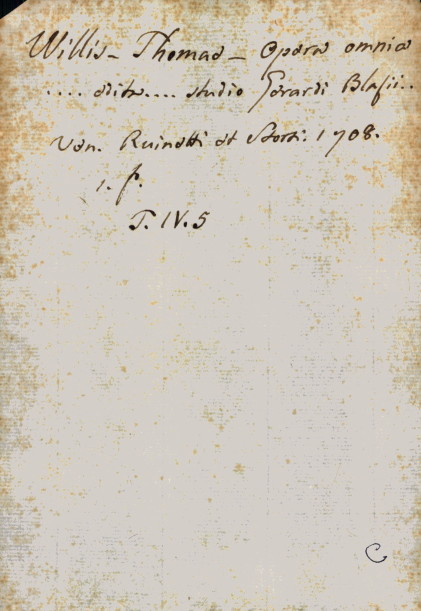 Willis - Thomae - Opera omnia
.... edita .... studio Gerardi Blasii..
Ven. Ruinetti et Storti. 1708.
1. f.
T. IV. 5
C